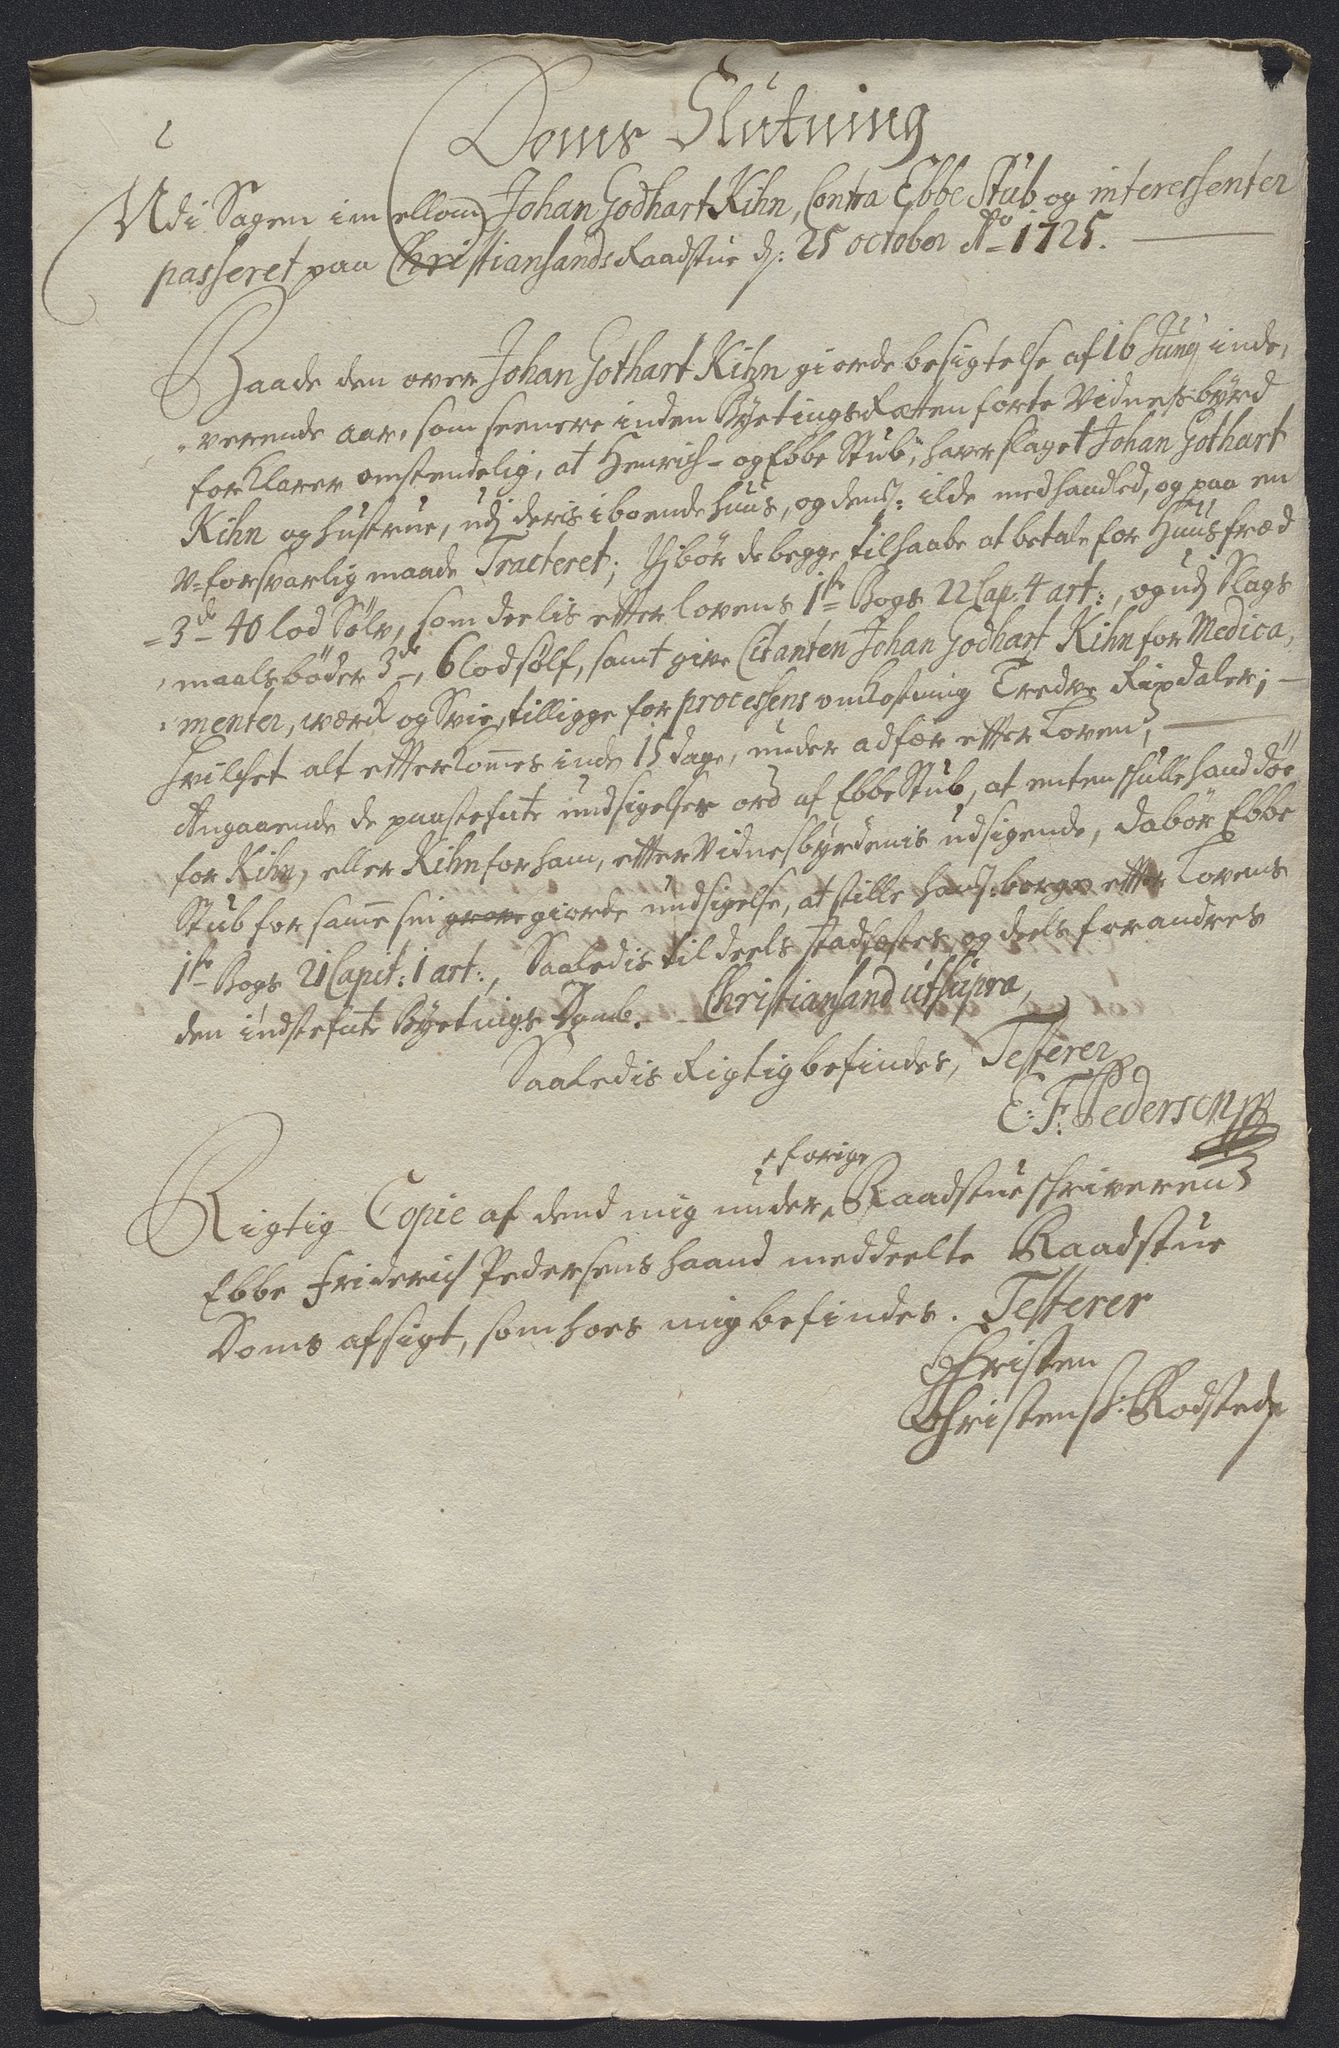 Doms Slutning
Udi Sagen imellom Johan Godhart Kihn, Contra Ebbe Stub og interessenter
passeret paa Christiansands Raadstue d: 25 october Ao 1725.
Baade den over Johan Gothart Kihn giorde besigtelse af 16 Junij inde,
værende aar, som seenere inden Byetings Rætten førte Vidnesbyrd
forklarer omstendelig, at Henrich- og Ebbe Stub, haver slaget Johan Gothart
Kihn og hustrue, udj deris iboende huus, og dend: ilde medhandled, og paa en
u-forsvarlig maade Tracteret; Thj bør de begge tilhaabe at betale for Huusfræd
3de 40 lod Sølv, som deelis efter lovens 1te Bogs 22 Cap: 4 art:, og udj Slags
maalsbøder 3de, 6 lod sølf, samt give Citanten Johan Godhart Kihn for Medica,
menter, værk og Svie, tilligge for processens omkostning Tredve Rixdaler;
hvilchet alt efterkom̃es inde 15 dage, under adfær efter Loven;
Angaaende de paastefnte undsigelses ord af Ebbe Stub, at enten schulle hand døe
for Kihn, eller Kihn for ham, efter Vidnesbyrdenis udsigende, da bør Ebbe
Stub for sam̃e sin grove giorde undsigelse, at stille hans: borgen efter Lovens
1te Bogs 21 Capit: 1 art:, Saaledis til deels stadfæstes og deels forandres
den indstefnte Byetings Domb. Christiansand ut supra,
Saaledis Rigtig befindes, Testerer
E: F: Pedersen
forige
Rigtig Copie af dend mig under Raadstueschriveren
Ebbe Friderich Pedersens haand meddeelte Raadstue
Doms afsigt, som hoes mig befindes. Testerer
Christen
Christens: Rodstede